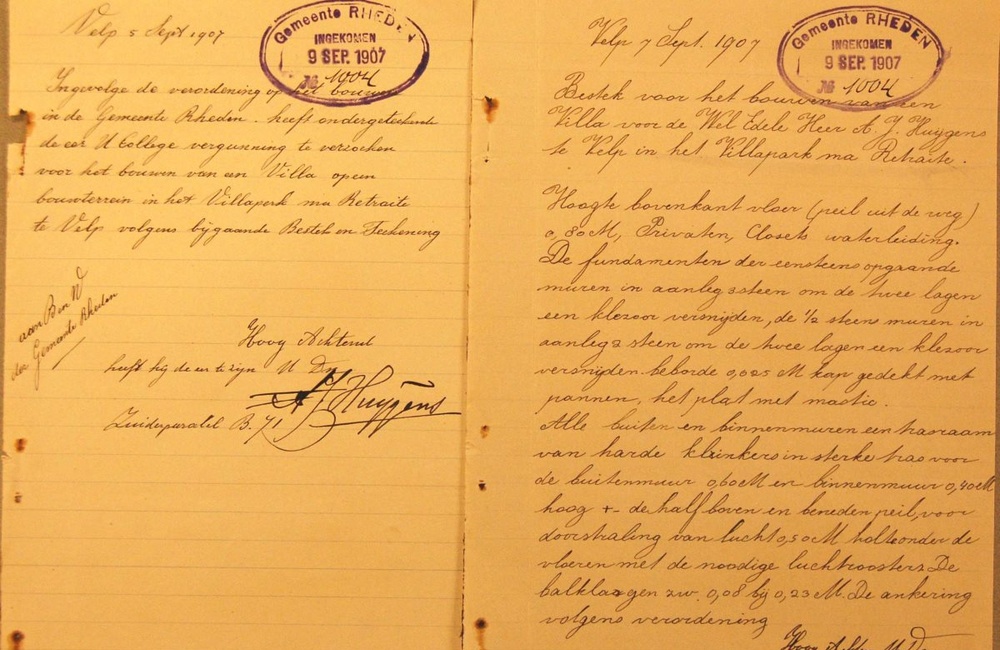 Velp 5 Sept 1907
Gemeente RHEDEN
INGEKOMEN
9 SEP. 1907
№ 1004
Ingevolge de verordening op het bouwen
in de Gemeente Rheden heeft ondergeteekende
de eer U College vergunning te verzoeken
voor het bouwen van een Villa op een
bouwterrein in het Villapark ma Retraite
te Velp volgens bijgaande Bestek en Teekening
aan B en W
der Gemeente Rheden
Hoog Achtend
heeft hij de eer te zijn U Dn
A J Huijgens
Zuiderparallel B. 71
Velp 7 Sept. 1907
Gemeente RHEDEN
INGEKOMEN
9 SEP. 1907
№ 1004
Bestek voor het bouwen van een
Villa voor de Wel Edele Heer A. J. Huijgens
te Velp in het Villapark ma Retraite.
Hoogte bovenkant vloer (peil uit de weg)
0,80 M, Privaten, Closets waterleiding.
De fundamenten der eensteens opgaande
muren in aanleg 3 steen om de twee lagen
een klezoor versnijden, de 1/2 steen muren in
aanleg 2 steen om de twee lagen een klezoor
versnijden beborde 0,025 M kap gedekt met
pannen, het plat met mastic.
Alle buiten en binnenmuren een trasraam
van harde klinkers in sterke tras voor
de buitenmuur 0,60 M en binnenmuur 0,40 M
hoog +- de half boven en beneden peil, voor
doorstraling van lucht 0,50 M holte onder de
vloeren met de noodige luchtroosters De
balklaagen zw. 0,08 bij 0,23 M. De ankering
volgens verordening
Hoog Acht. U D